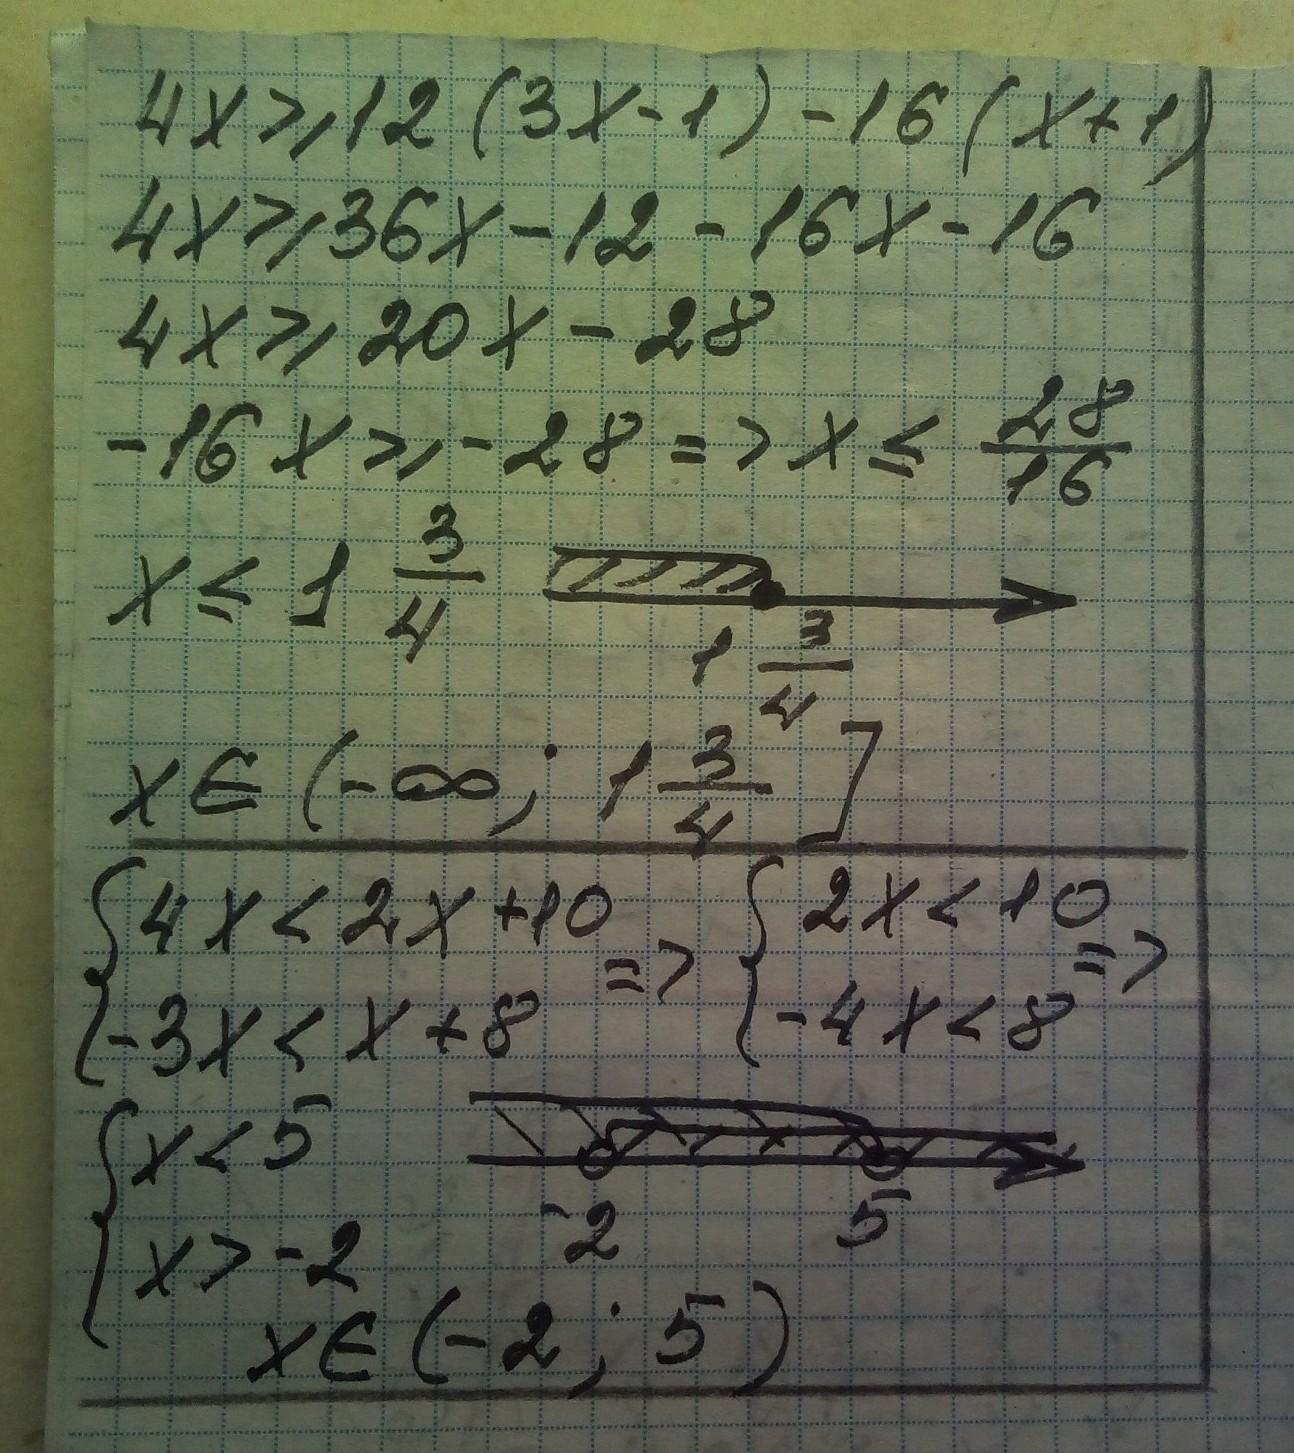 4x ≥ 12(3x-1) - 16(x+1)
4x ≥ 36x - 12 - 16x - 16
4x ≥ 20x - 28
-16x ≥ -28 => x ≤ 28/16
x ≤ 1 3/4
1 3/4
x ∈ (-∞; 1 3/4]
{4x < 2x + 10 => {2x < 10 =>
-3x < x + 8 -4x < 8
{x < 5
-2 5
x > -2
x ∈ (-2; 5)